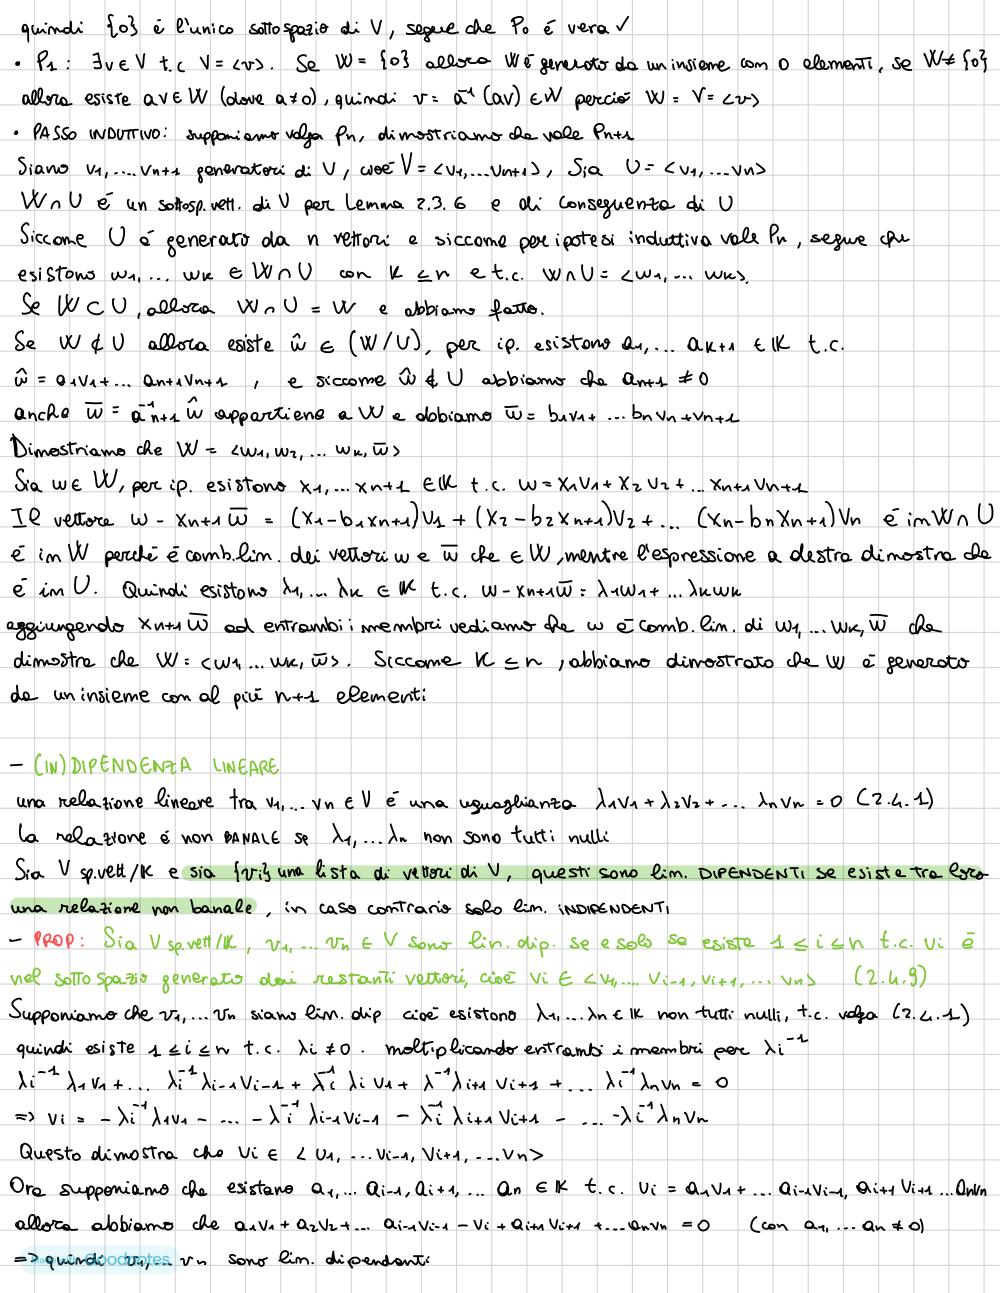 quindi {0} è l'unico sottospazio di V, segue che P₀ è vera ✓
• P₁: ∃v∈V t.c V=<v>. Se W={0} allora W è generato da un insieme con 0 elementi, se W≠{0}
allora esiste av∈W (dove a≠0), quindi v= a⁻¹(av) ∈W perciò W=V=<v>
• PASSO INDUTTIVO: supponiamo valga Pn, dimostriamo che vale Pn+1
Siano v₁,.... vn+1 generatori di V, cioè V=<v₁,...vn+1>, Sia U=<v₁,...vn>
W∩U è un sottosp.vett. di V per Lemma 2.3.6 e di conseguenza di U
Siccome U è generato da n vettori e siccome per ipotesi induttiva vale Pn, segue che
esistono w₁,... wk ∈ W∩U con K ≤ n e t.c. W∩U = <w₁,... wk>.
Se W⊂U, allora W∩U = W e abbiamo fatto.
Se W ⊄ U allora esiste ŵ ∈ (W/U), per ip. esistono a₁,... ak+1 ∈ K t.c.
ŵ = a₁v₁+... an+1vn+1 , e siccome ŵ ∉ U abbiamo che an+1 ≠ 0
anche w̅ = a⁻¹n+1 ŵ appartiene a W e abbiamo w̅ = b₁v₁+ ...bnvn+vn+1
Dimostriamo che W = <w₁,w₂,... wk,w̅>
Sia w∈W, per ip. esistono x₁,...xn+1 ∈K t.c. w=x₁v₁+x₂v₂+...xn+1vn+1
Il vettore w-xn+1w̅ = (x₁-b₁xn+1)v₁+(x₂-b₂xn+1)v₂+... (xn-bnxn+1)vn è in W∩U
è in W perché è comb.lin. dei vettori w e w̅ che ∈W, mentre l'espressione a destra dimostra che
è in U. Quindi esistono λ₁,... λk ∈ K t.c. w-xn+1w̅=λ₁w₁+...λkwk
aggiungendo xn+1w̅ ad entrambi i membri vediamo che w è comb.lin. di w₁,...wk,w̅ che
dimostra che W=<w₁...wk,w̅>. Siccome K ≤ n, abbiamo dimostrato che W è generato
da un insieme con al più n+1 elementi
- (IN)DIPENDENZA LINEARE
una relazione lineare tra v₁,...vn∈V è una uguaglianza λ₁v₁+λ₂v₂+... λnvn=0 (2.4.1)
la relazione è non BANALE se λ₁,...λn non sono tutti nulli
Sia V sp.vett/K e sia {vi} una lista di vettori di V, questi sono lin. DIPENDENTI se esiste tra loro
una relazione non banale, in caso contrario solo lin. INDIPENDENTI
- PROP: Sia V sp.vett/K, v₁,...vn ∈ V sono lin. dip. se e solo se esiste 1≤i≤n t.c. vi è
nel sottospazio generato dai restanti vettori, cioè vi ∈ <v₁,... vi-1,vi+1,... vn> (2.4.9)
Supponiamo che v₁,...vn siano lin. dip cioè esistono λ₁,...λn∈K non tutti nulli, t.c. valga (2.4.1)
quindi esiste 1≤i≤n t.c. λi≠0. moltiplicando entrambi i membri per λi⁻¹
λi⁻¹λ₁v₁+... λi⁻¹λi-1vi-1+λi⁻¹λiv₁+λ⁻¹λi+1vi+1+... λi⁻¹λnvn=0
=> vi = -λi⁻¹λ₁v₁-... -λi⁻¹λi-1vi-1 -λi⁻¹λi+1vi+1 - ... -λi⁻¹λnvn
Questo dimostra che vi∈ <v₁,...vi-1,vi+1,...vn>
Ora supponiamo che esistano a₁,...ai-1,ai+1,... an ∈K t.c. vi=a₁v₁+...ai-1vi-1,ai+1vi+1...anvn
allora abbiamo che a₁v₁+a₂v₂+... ai-1vi-1-vi+ai+1vi+1+...anvn=0 (con a₁,...an≠0)
=> quindi v₁,... vn sono lin. dipendenti
Goodnotes